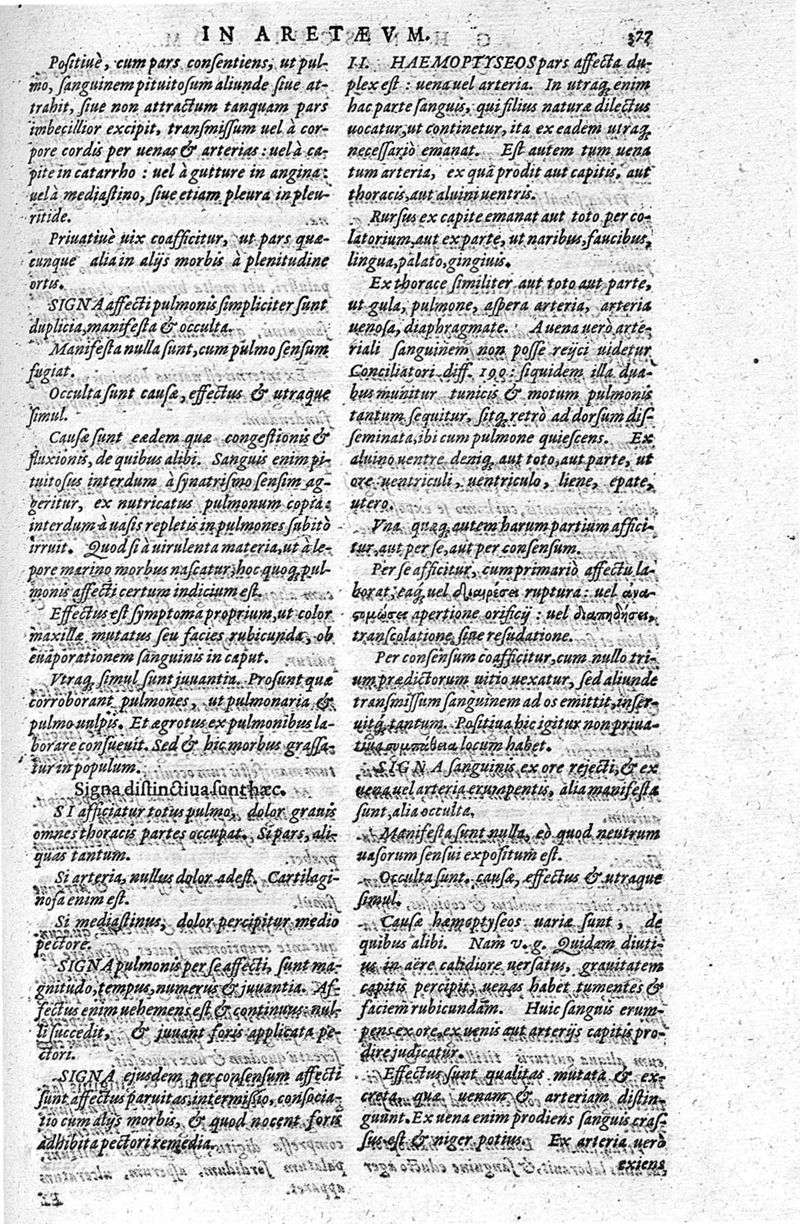 IN ARETÆVM. 377
Positiuè, cum pars consentiens, ut pul-
mo, sanguinem pituitosum aliunde siue at-
trahit, siue non attractum tanquam pars
imbecillior excipit, transmissum uel à cor-
pore cordis per uenas & arterias: uel à ca-
pite in catarrho: uel à gutture in angina:
uel à mediastino, siue etiam pleura in pleu-
ritide.
Priuatiuè uix coafficitur, ut pars quæ-
cunque alia in alijs morbis à plenitudine
ortis.
SIGNA affecti pulmonis simpliciter sunt
duplicia, manifesta & occulta.
Manifesta nulla sunt, cum pulmo sensum
fugiat.
Occulta sunt causæ, effectus & utraque
simul.
Causæ sunt eædem quæ congestionis &
fluxionis, de quibus alibi. Sanguis enim pi-
tuitosus interdum à synatrismo sensim ag-
geritur, ex nutricatus pulmonum copia:
interdum à uasis repletis in pulmones subitò
irruit. Quod si à uirulenta materia, ut à le-
pore marino morbus nascatur, hoc quoq, pul-
monis affecti certum indicium est.
Effectus est symptoma proprium, ut color
maxillæ mutatus seu facies rubicunda, ob
euaporationem sanguinis in caput.
Vtraq, simul sunt juuantia. Prosunt quæ
corroborant pulmones, ut pulmonaria &
pulmo uulpis. Et ægrotus ex pulmonibus la-
borare consueuit. Sed & hic morbus grassa-
tur in populum.
Signa distinctiua sunt hæc.
SI afficiatur totus pulmo, dolor grauis
omnes thoracis partes occupat. Si pars, ali-
quas tantum.
Si arteria, nullus dolor adest. Cartilagi-
nosa enim est.
Si mediastinus, dolor percipitur medio
pectore.
SIGNA pulmonis per se affecti, sunt ma-
gnitudo, tempus, numerus & juuantia. Af-
fectus enim uehemens est & continuus: nul-
li succedit, & juuant foris applicata pe-
ctori.
SIGNA ejusdem per consensum affecti
sunt affectus paruitas, intermissio, consocia-
tio cum alijs morbis, & quod nocent foris
adhibita pectori remedia.
II. HAEMOPTYSEOS pars affecta du-
plex est: uena uel arteria. In utraq, enim
hac parte sanguis, qui filius naturæ dilectus
uocatur, ut continetur, ita ex eadem utraq,
necessariò emanat. Est autem tum uena
tum arteria, ex quâ prodit aut capitis, aut
thoracis, aut aluini uentris.
Rursus ex capite emanat aut toto per co-
latorium, aut ex parte, ut naribus, faucibus,
lingua, palato, gingiuis.
Ex thorace similiter aut toto aut parte,
ut gula, pulmone, aspera arteria, arteria
uenosa, diaphragmate. A uena uerò arte-
riali sanguinem non posse rejici uidetur
Conciliatori diff. 190: siquidem illa dua-
bus munitur tunicis & motum pulmonis
tantum sequitur, sitq, retrò ad dorsum dis-
seminata, ibi cum pulmone quiescens. Ex
aluino uentre deniq, aut toto, aut parte, ut
ore uentriculi, uentriculo, liene, epate,
utero.
Vna quæq, autem harum partium affici-
tur, aut per se, aut per consensum.
Per se afficitur, cum primariò affectu la-
borat, eaq, uel διαιρέσει ruptura: uel ἀνα-
στομώσει apertione orificij: uel διαπηδήσει,
transcolatione siue resudatione.
Per consensum coafficitur, cum nullo tri-
um prædictorum uitio uexatur, sed aliunde
transmissum sanguinem ad os emittit, inser-
uitq, tantum. Positiua hic igitur non priua-
tiua συμπάθεια locum habet.
SIGNA sanguinis ex ore rejecti, & ex
uena uel arteria erumpentis, alia manifesta
sunt, alia occulta.
Manifesta sunt nulla, eò quod neutrum
uasorum sensui expositum est.
Occulta sunt causæ, effectus & utraque
simul.
Causæ hæmoptyseos uariæ sunt, de
quibus alibi. Nam v. g. Quidam diuti-
us in aëre calidiore uersatus, grauitatem
capitis percipit, uenas habet tumentes &
faciem rubicundam. Huic sanguis erum-
pens ex ore, ex uenis aut arterijs capitis pro-
dire judicatur.
Effectus sunt qualitas mutata & ex-
creta, quæ uenam & arteriam distin-
guunt. Ex uena enim prodiens sanguis cras-
sus est & niger potius. Ex arteria uerò
exiens